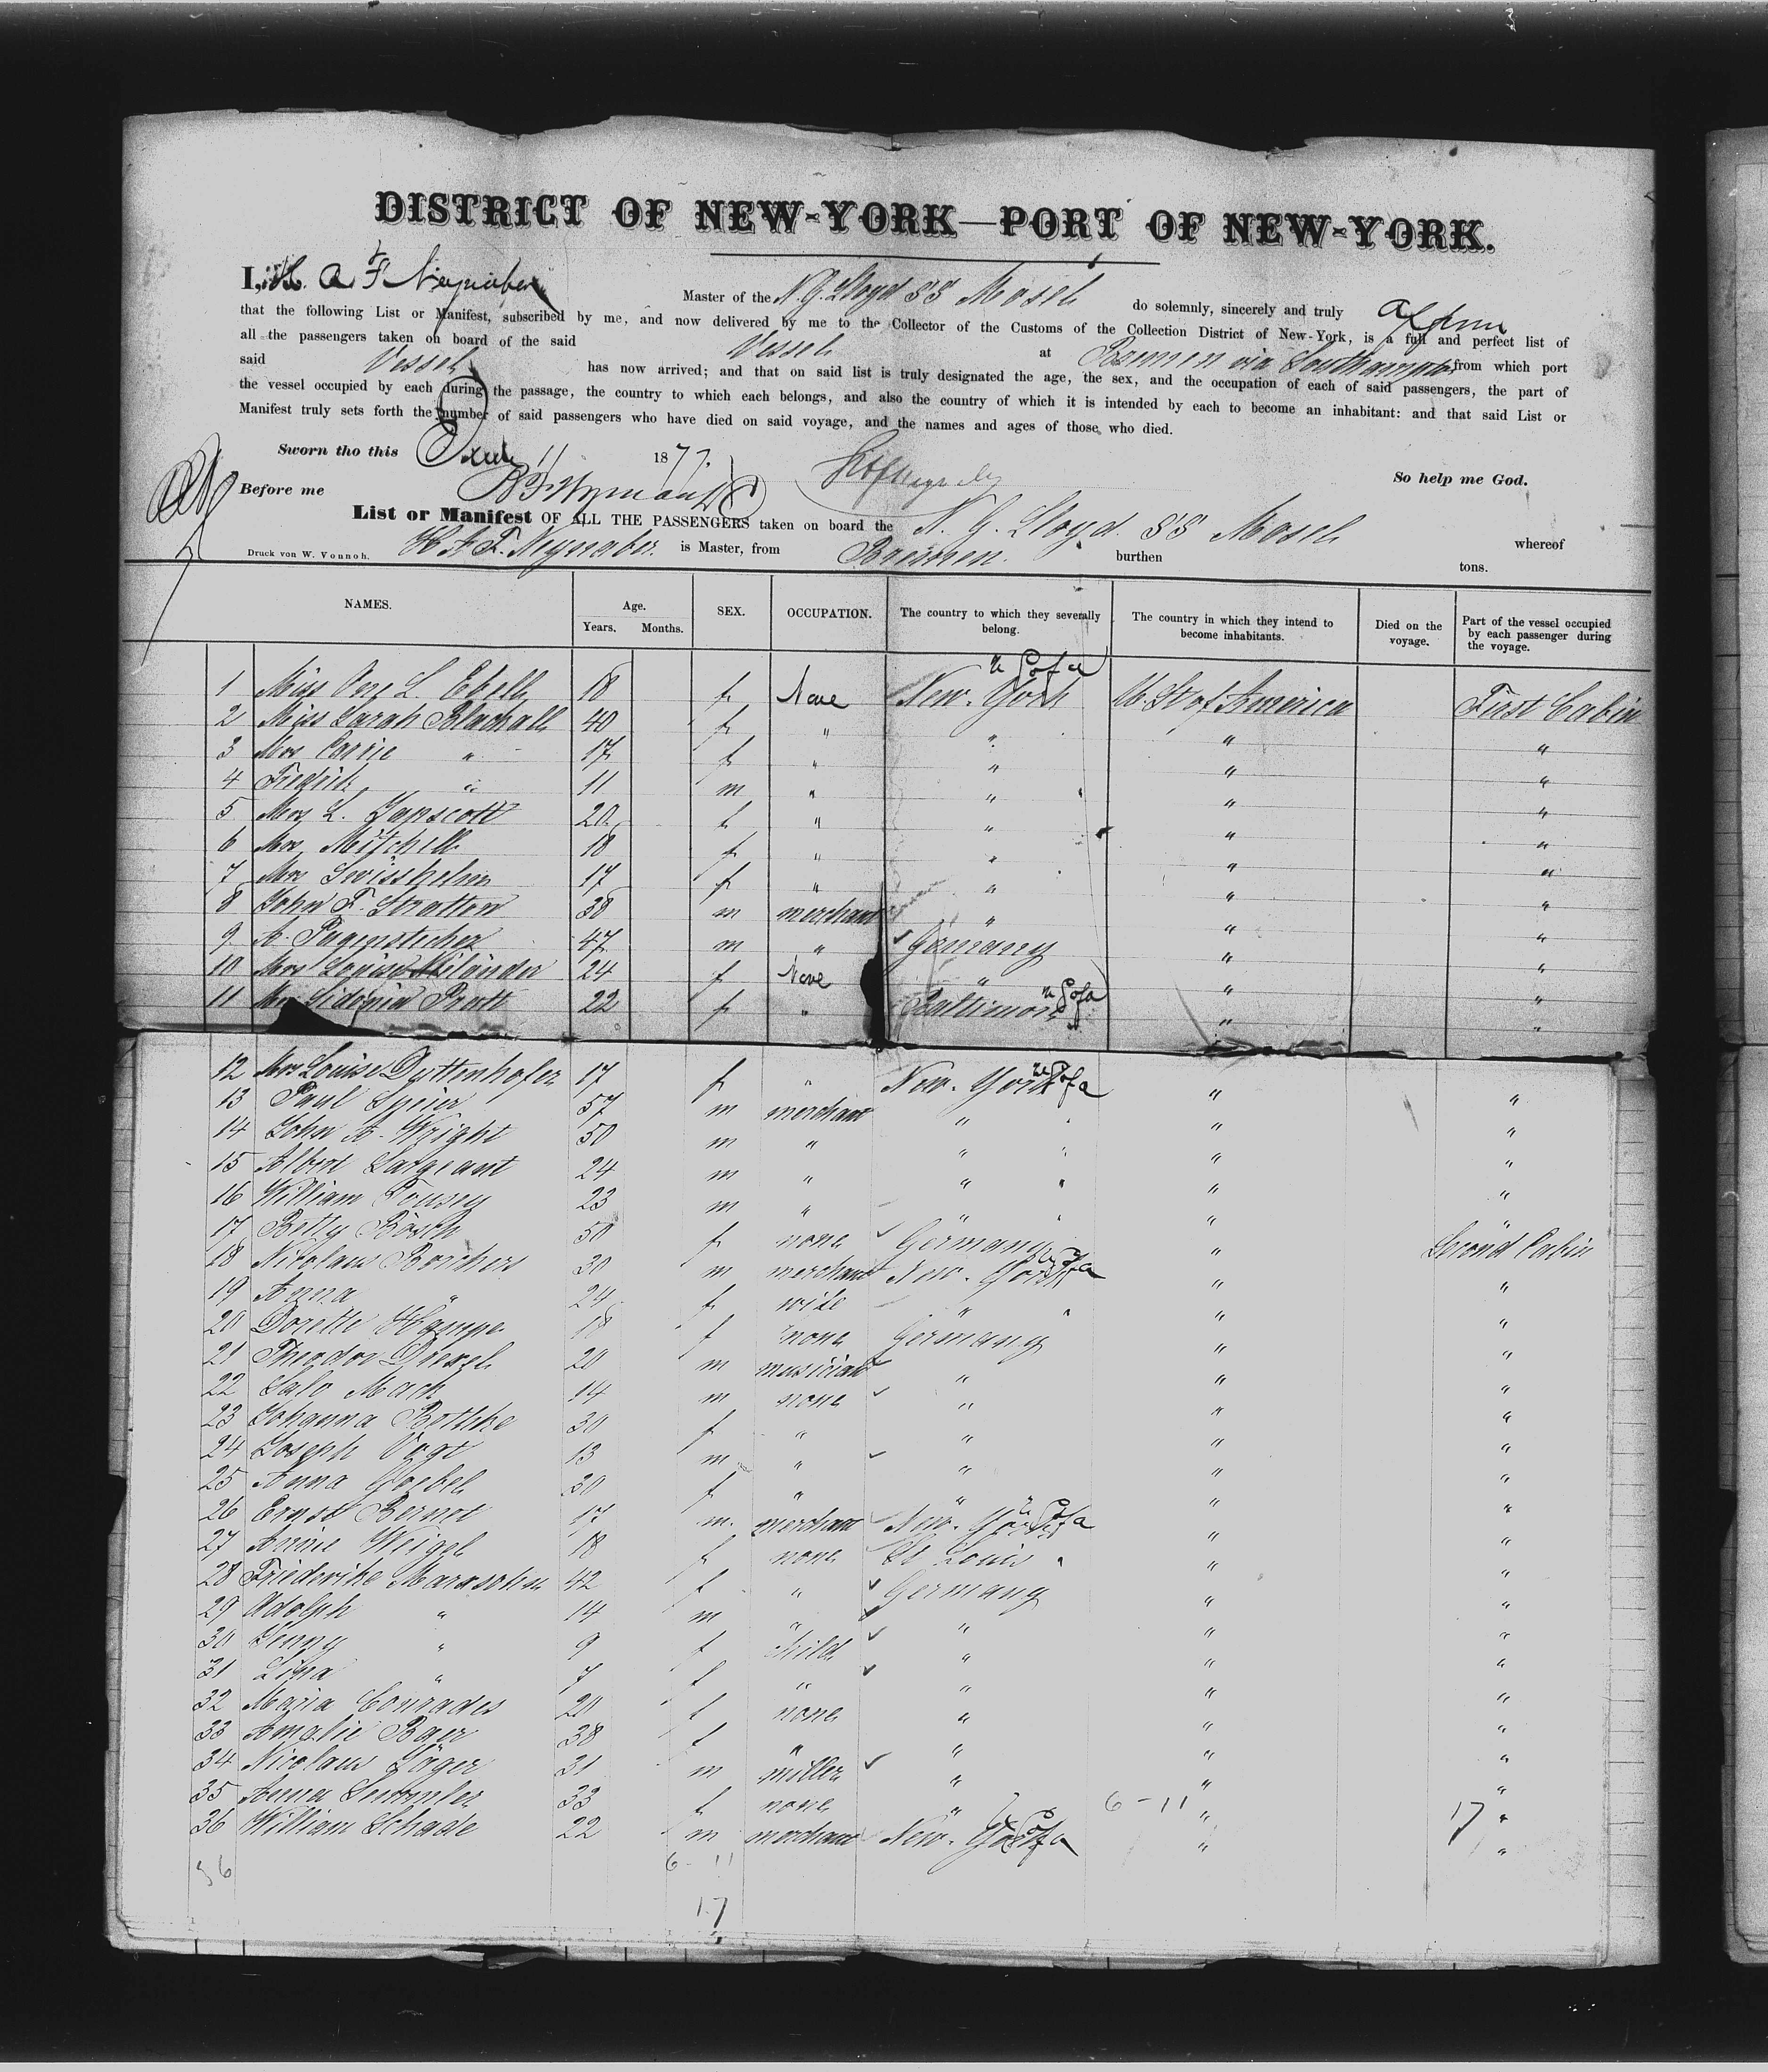 DISTRICT OF NEW-YORK—PORT OF NEW-YORK.
I, H. A. F. Neynaber Master of the N. G. Lloyd SS Mosel do solemnly, sincerely and truly affirm
that the following List or Manifest, subscribed by me, and now delivered by me to the Collector of the Customs of the Collection District of New-York, is a full and perfect list of
all the passengers taken on board of the said Vessel at Bremen via Southampton from which port
said Vessel has now arrived; and that on said list is truly designated the age, the sex, and the occupation of each of said passengers, the part of
the vessel occupied by each during the passage, the country to which each belongs, and also the country of which it is intended by each to become an inhabitant: and that said List or
Manifest truly sets forth the number of said passengers who have died on said voyage, and the names and ages of those who died.
Sworn tho this 11 1877. So help me God.
Before me
List or Manifest OF ALL THE PASSENGERS taken on board the N. G. Lloyd SS Mosel whereof
Druck von W. Vonnoh. H. A. F. Neynaber. is Master, from Bremen. burthen tons.
NAMES. Age. Years. Months. SEX. OCCUPATION. The country to which they severally belong. The country in which they intend to become inhabitants. Died on the voyage. Part of the vessel occupied by each passenger during the voyage.
1 Miss L. Ebell 18 f None New-York U. St. of America First Cabin
2 Miss Sarah Blachall 40 f " " " "
3 Mrs Carrie " 17 f " " " "
4 " 11 m " " " "
5 Mrs L. Tapscott 20 f " " " "
6 Mrs Mitchell 18 f " " " "
7 Mrs Swisshelm 17 f " " " "
8 John F. Stratton 38 m merchant " " "
9 A. Pagenstecher 47 m " Germany " "
10 Mrs Louise 24 f None " " "
11 Sidonia Pratt 22 f " Baltimore " "
12 Mrs Louise Duttenhofer 17 f " New-York " "
13 Paul Speier 57 m merchant " " "
14 John A. Wright 50 m " " " "
15 Albert Sargeant 24 m " " " "
16 William Tousey 23 m " " " "
17 Betty Bösch 50 f none Germany " Second Cabin
18 Nicolaus Borchers 30 m merchant New-York " "
19 Anna " 24 f wife " " "
20 Dorette Hampe 18 f none Germany " "
21 Theodor Drexel 20 m musician " " "
22 Salo Mack 14 m none " " "
23 Johanna Rothke 30 f " " " "
24 Joseph Vogt 13 m " " " "
25 Anna Goebel 30 f " " " "
26 Ernst Bernot 17 m. merchant New-York " "
27 Annie Weigel 18 f none St Louis " "
28 Friederike Marxsohn 42 f " Germany " "
29 Adolph " 14 m " " " "
30 Jenny " 9 f child " " "
31 Lina " 7 f " " " "
32 Maria Conrades 20 f none " " "
33 Amalie Baer 38 f " " " "
34 Nicolaus Jäger 31 m miller " " "
35 Anna Semmler 33 f none " 6-11 " 17 "
36 William Schade 22 m merchant New-York " "
36 6-11
17